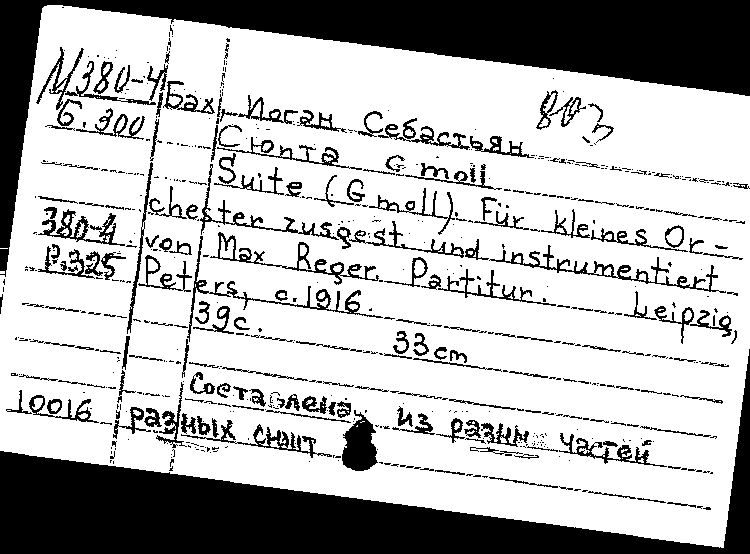 М380-4 Бах, Иоган Себастьян 803
Б.300 Сюита G moll
Suite (G moll). Für kleines Or-
380-4 chester zusgest. und instrumentiert
Р.325 von Max Reger. Partitur. Leipzig,
Peters, c.1916.
39с. 33cm
Составлена из разнн частей
10016 разных сюит